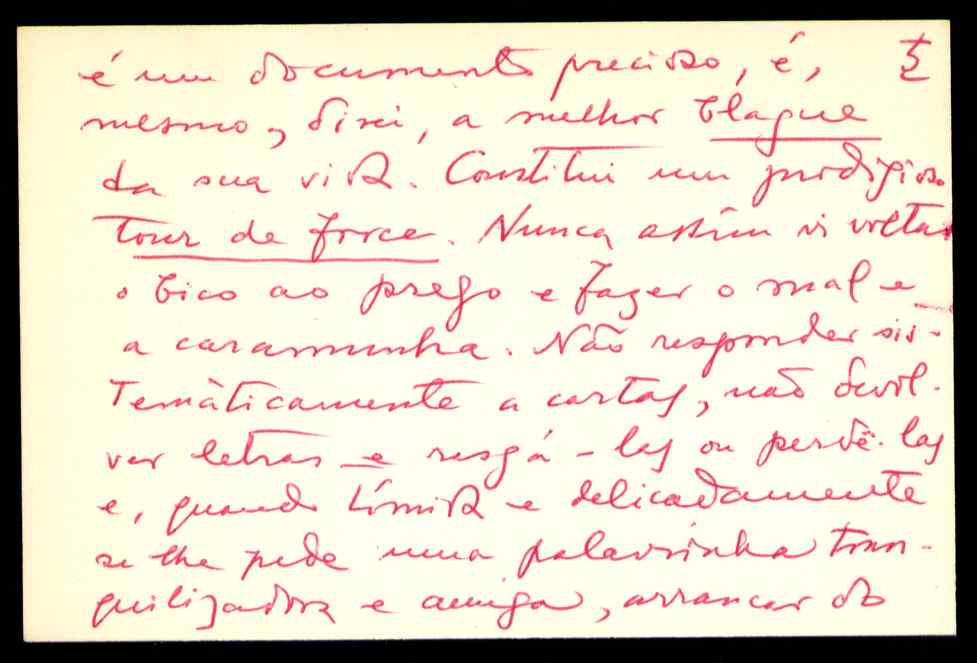 5
é um documento precioso, é,
mesmo, direi, a melhor blague
da sua vida. Constitui um prodigioso
tour de force. Nunca assim vi voltar
o bico ao prego e fazer o mal e
a caramunha. Não responder sis-
temàticamente a cartas, não devol-
ver letras e rasgá-las ou perdê-las
e, quando tímida e delicadamente
se lhe pede uma palavrinha tran-
quilizadora e amiga, arrancar do